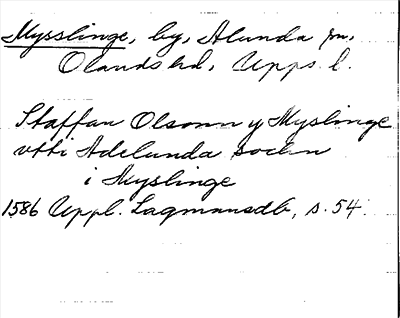 Mysslinge, by, Alunda sn,
Olands hd, Upps. l.
Staffan Olsonn y Myslinge
vtti Adelunda socken
i Myslinge
1586 Uppl. Lagmansdb, s. 54.